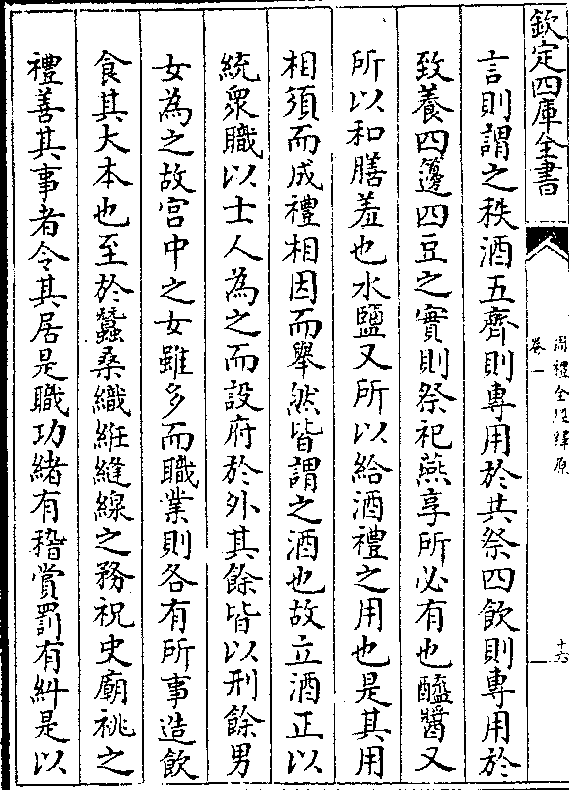 欽定四庫全書
卷一
十六
言則謂之秩酒五齊則專用於其祭四飲則專用於
致養四籩四豆之實則祭祀燕享所必有也醯醬又
所以和膳羞也水鹽又所以給酒禮之用也是其用
相須而成禮相因而舉然皆謂之酒也故立酒正以
統衆職以士人為之而設府於外其餘皆以刑餘男
女為之故宫中之女雖多而職業則各有所事造飲
食其大本也至於蠶桑織絍縫線之務祝史廟祧之
禮善其事者令其居是職功緒有稽賞罰有糾是以